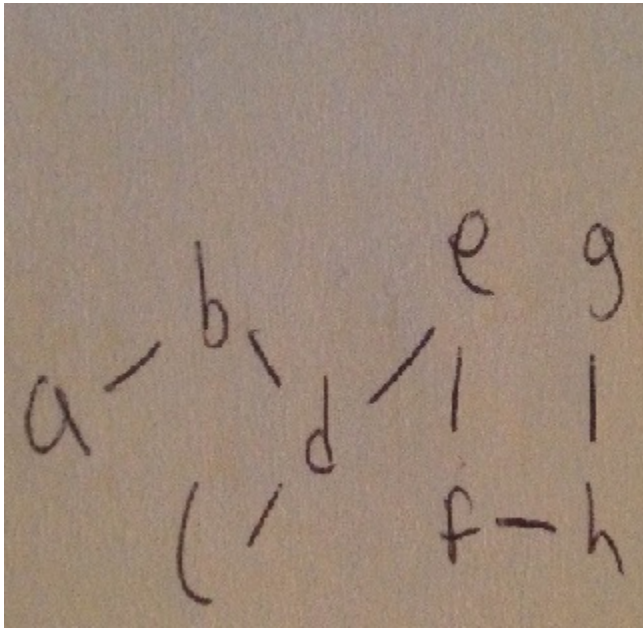 e g
b
a
d
c
f h